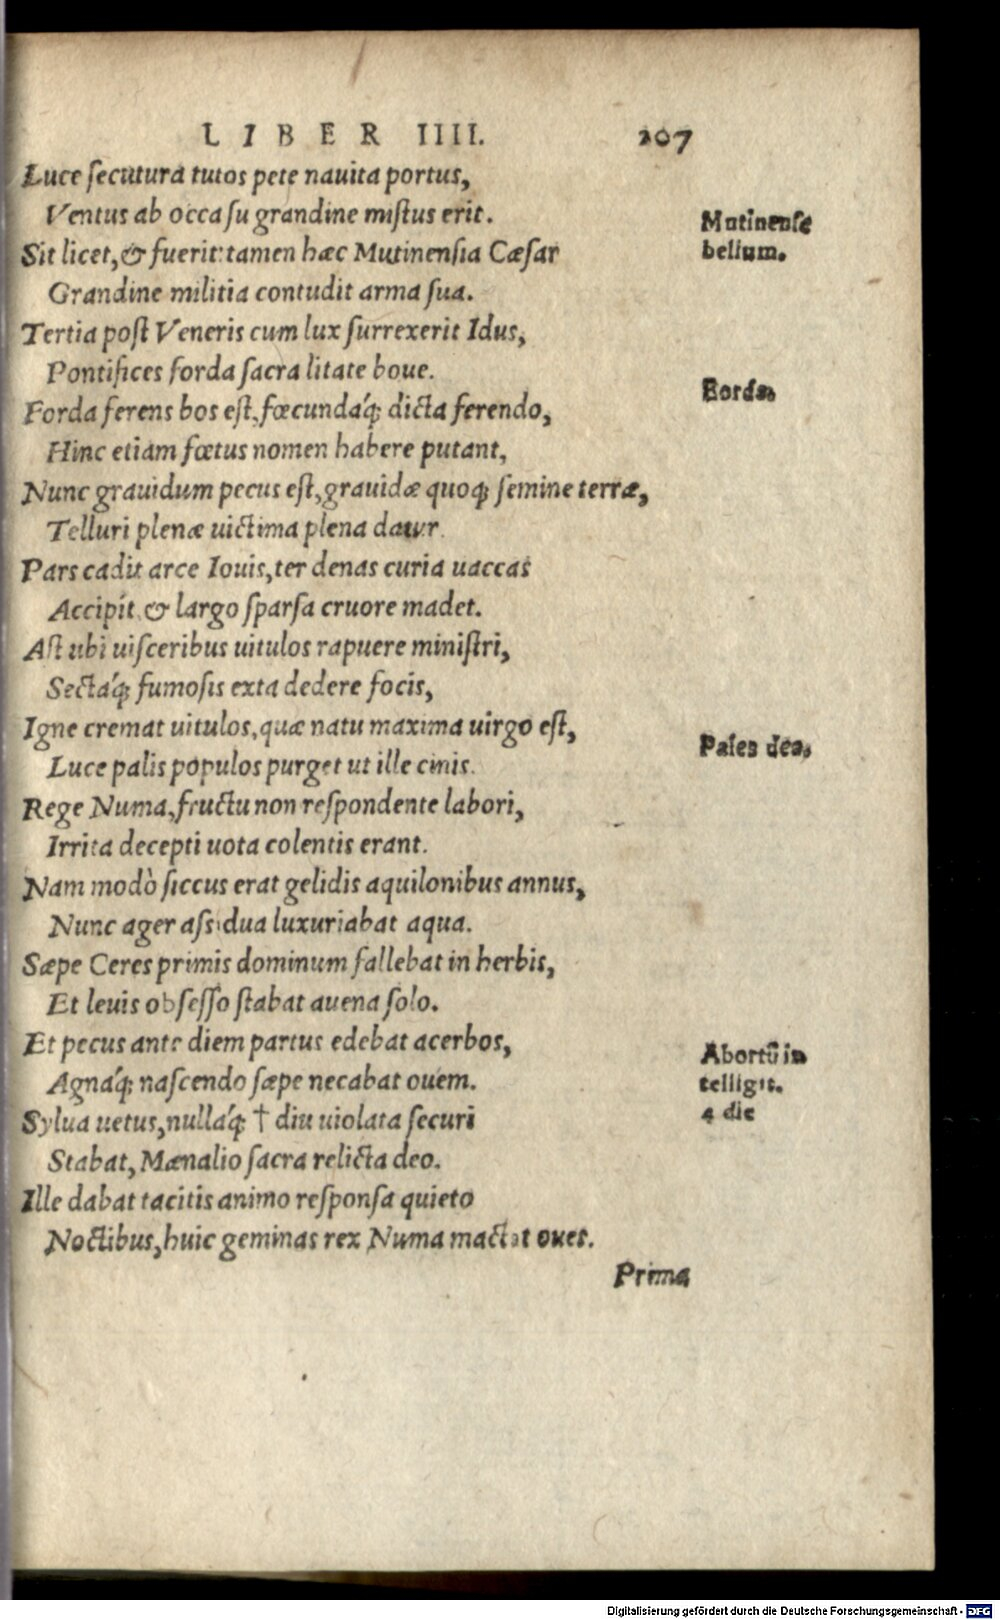 LIBER IIII. 207
Luce secutura tutos pete nauita portus,
Ventus ab occasu grandine mistus erit.
Mutinense
bellum.
Sit licet, & fuerit: tamen hæc Mutinensia Cæsar
Grandine militia contudit arma sua.
Tertia post Veneris cum lux surrexerit Idus,
Pontifices forda sacra litate boue.
Fordæ.
Forda ferens bos est, fœcundáq; dicta ferendo,
Hinc etiam fœtus nomen habere putant,
Nunc grauidum pecus est, grauidæ quoq; semine terræ,
Telluri plenæ uictima plena datur.
Pars cadit arce Iouis, ter denas curia uaccas
Accipit, & largo sparsa cruore madet.
Ast ubi uisceribus uitulos rapuere ministri,
Sectáq; fumosis exta dedere focis,
Igne cremat uitulos, quæ natu maxima uirgo est,
Pales dea.
Luce palis populos purget ut ille cinis.
Rege Numa, fructu non respondente labori,
Irrita decepti uota colentis erant.
Nam modò siccus erat gelidis aquilonibus annus,
Nunc ager assidua luxuriabat aqua.
Sæpe Ceres primis dominum fallebat in herbis,
Et leuis obsesso stabat auena solo.
Et pecus ante diem partus edebat acerbos,
Abortũ in
telligit.
Agnáq; nascendo sæpe necabat ouem.
Sylua uetus, nulláq; † diu uiolata securi
4 die
Stabat, Mænalio sacra relicta deo.
Ille dabat tacitis animo responsa quieto
Noctibus, huic geminas rex Numa mactat oues.
Prima
Digitalisierung gefördert durch die Deutsche Forschungsgemeinschaft - DFG